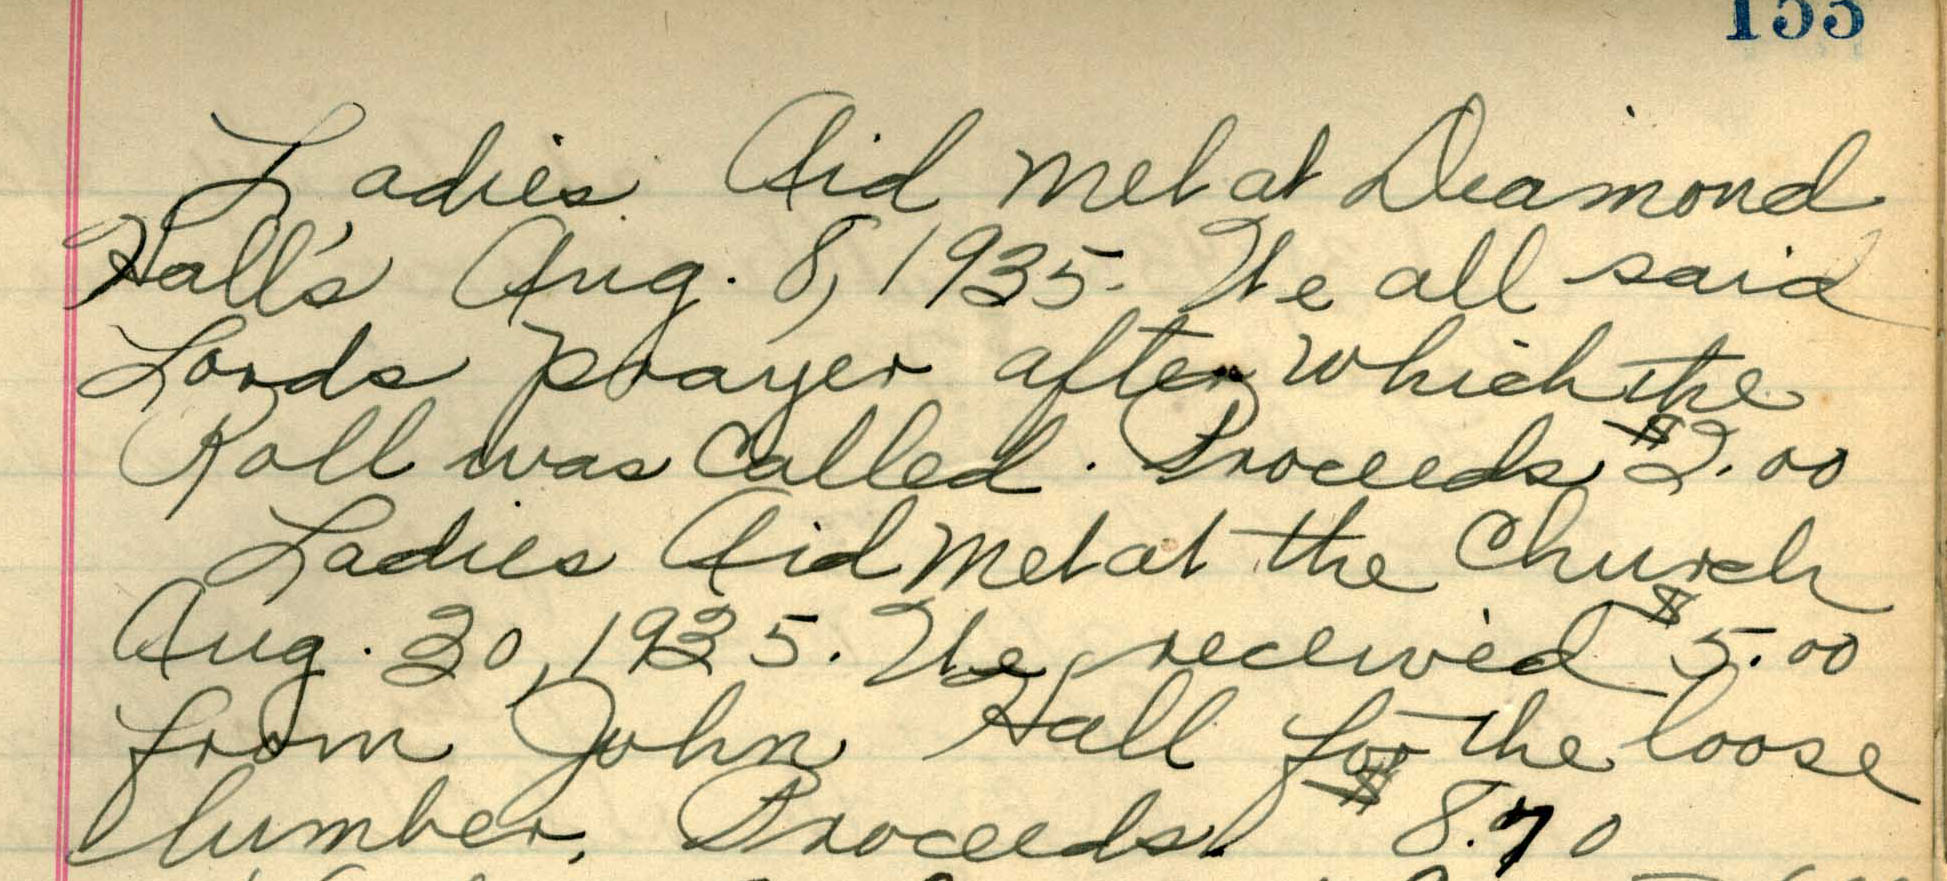 155
Ladies Aid met at Diamond
Hall's Aug. 8, 1935. We all said
Lords prayer after which the
Roll was Called. Proceeds $2.00
Ladies Aid Met at the Church
Aug. 30, 1935. We received $5.00
from John Hall for the loose
lumber. Proceeds $8.70